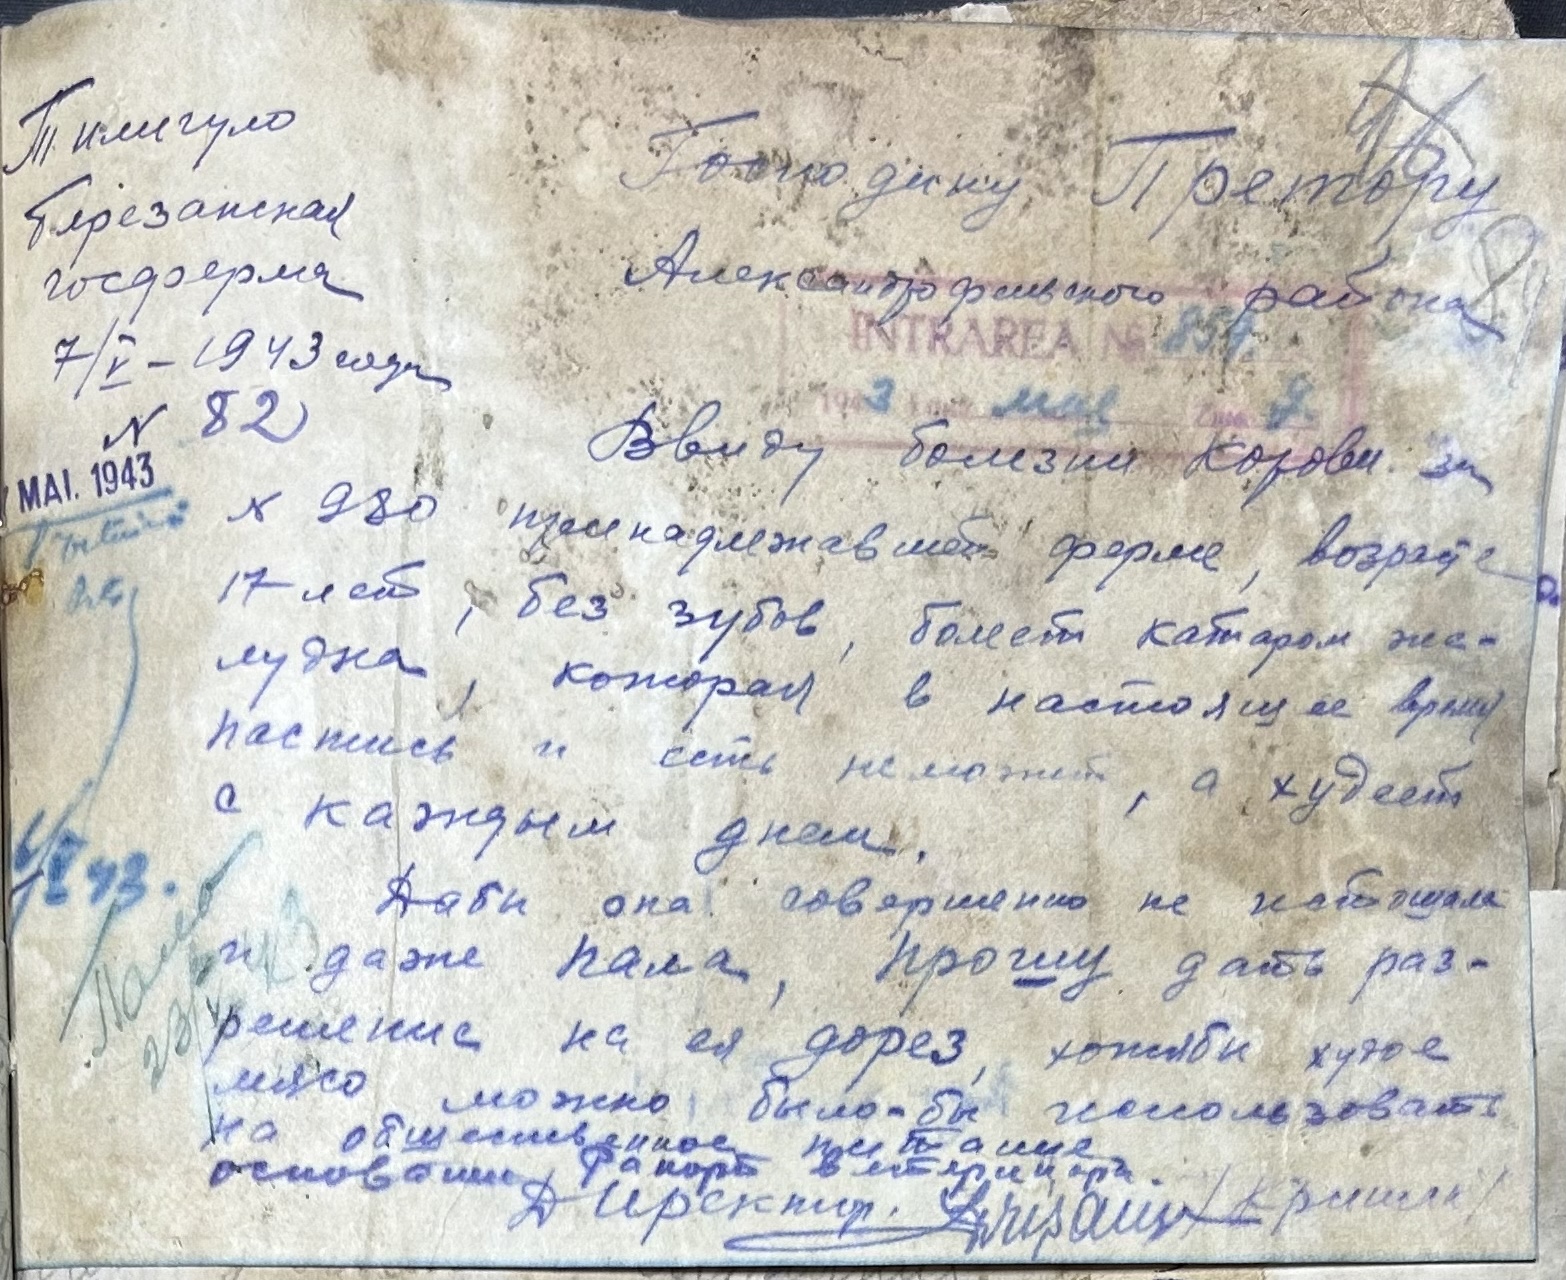 Тилигуло
Березанская
госферма
7/V – 1943 года
N 82
MAI. 1943
Господину Претору
Александрфельского района
INTRAREA № 859.
1943 мая 7.
Ввиду болезни коровы за
N 980 принадлежавшей ферме, возрасте
17 лет, без зубов, болеет катаром же-
лудка, которая в настоящее время
пастись и есть неможет, а худеет
с каждым днем.
Дабы она совершенно не истощала
и даже пала, прошу дать раз-
решение на ея дорез, хотябы худое
мясо можно было-бы использовать
на общественное питание
основании рапорт ветеринара.
Директор.